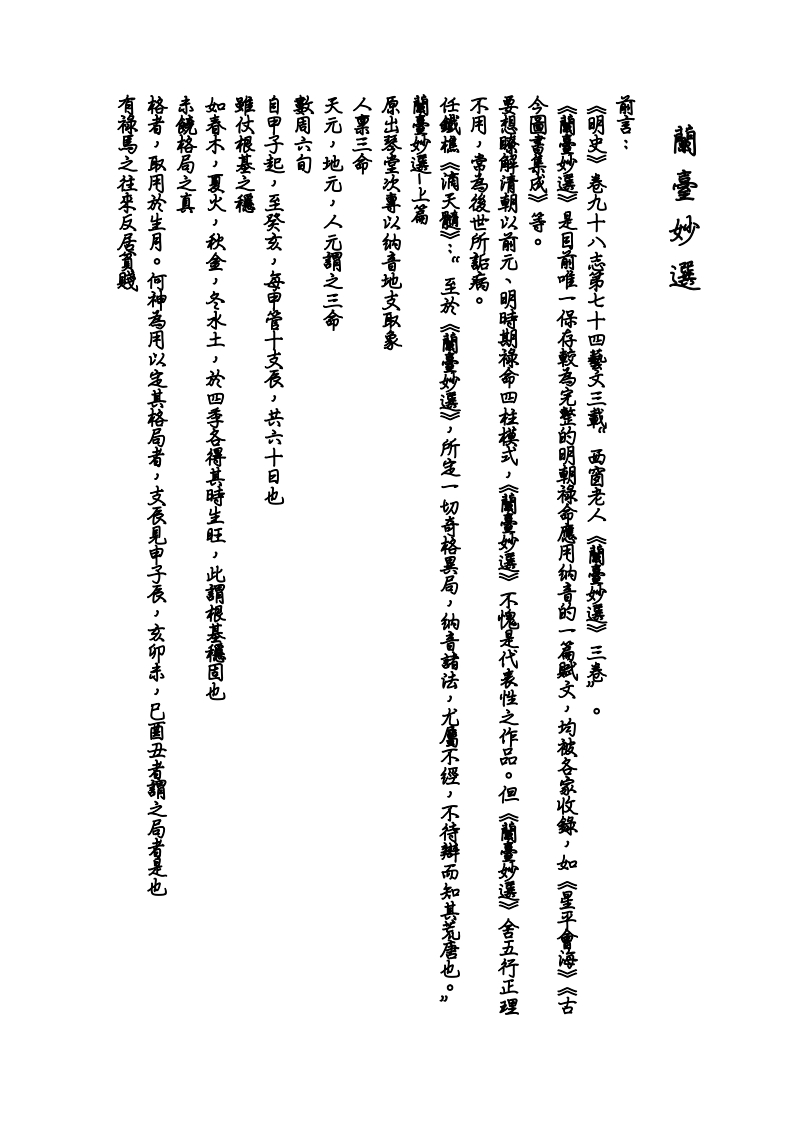 蘭臺妙選
前言：
《明史》卷九十八志第七十四藝文三載“西窗老人《蘭臺妙選》三卷”。
《蘭臺妙選》是目前唯一保存較為完整的明朝祿命應用納音的一篇賦文，均被各家收錄，如《星平會海》《古
今圖書集成》等。
要想瞭解清朝以前元、明時期祿命四柱模式，《蘭臺妙選》不愧是代表性之作品。但《蘭臺妙選》舍五行正理
不用，常為後世所詬病。
任鐵樵《滴天髓》：“至於《蘭臺妙選》，所定一切奇格異局，納音諸法，尤屬不經，不待辯而知其荒唐也。”
蘭臺妙選—上篇
原出琴堂次專以納音地支取象
人稟三命
天元，地元，人元謂之三命
數周六旬
自甲子起，至癸亥，每甲管十支辰，共六十日也
雖仗根基之穩
如春木，夏火，秋金，冬水土，於四季各得其時生旺，此謂根基穩固也
未饒格局之真
格者，取用於生月。何神為用以定其格局者，支辰見申子辰，亥卯未，巳酉丑者謂之局者是也
有祿馬之往來反居貧賤